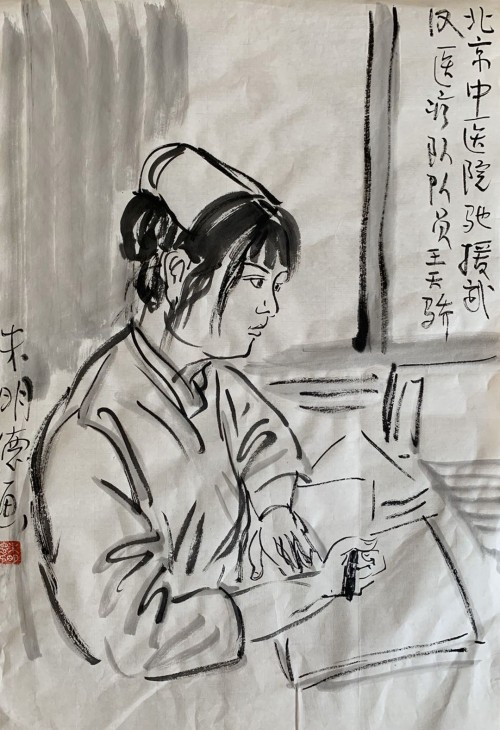 北京中医院驰援武
汉医疗队队员王天骄
朱明德画